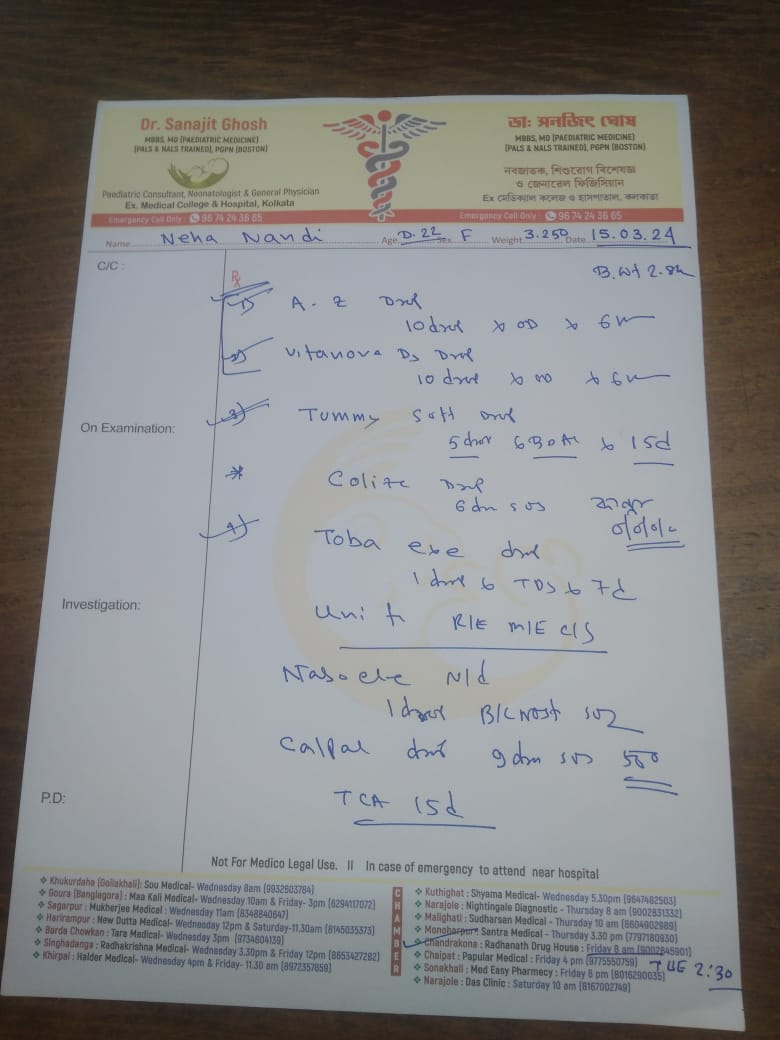 Dr. Sanajit Ghosh
MBBS, MD (PAEDIATRIC MEDICINE)
(PALS & NALS TRAINED), PGPN (BOSTON)
Paediatric Consultant, Neonatologist & General Physician
Ex. Medical College & Hospital, Kolkata
Emergency Call Only : 96 74 24 36 65
ডাঃ সনজিৎ ঘোষ
MBBS, MD (PAEDIATRIC MEDICINE)
(PALS & NALS TRAINED), PGPN (BOSTON)
নবজাতক, শিশুরোগ বিশেষজ্ঞ
ও জেনারেল ফিজিসিয়ান
Ex মেডিক্যাল কলেজ ও হাসপাতাল, কলকাতা
Emergency Call Only : 96 74 24 36 65
Name Neha Nandi Age D. 22 Sex F Weight 3.250 Date 15.03.24
C/C :
B.Wt 2.8k
Rx
1) A-Z Drop
10 drop x OD x 6
2) Vitanova D3 Drop
10 drop x OD x 6
On Examination:
3) Tummy Soft drop
5 drop x 15d
* Drop
SOS
4) Toba drop
1 drop x TDS x 7d
Investigation:
R/E M/E C/S
N/d
1 drop
Calpol SOS
P.D:
TCA 15d
Not For Medico Legal Use. II In case of emergency to attend near hospital
CHAMBER
Khukurdaha (Goilakhali): Sou Medical- Wednesday 8am (9932603784)
Goura (Banglagora) : Maa Kali Medical- Wednesday 10am & Friday- 3pm (6294117072)
Sagarpur : Mukherjee Medical : Wednesday 11am (8348840647)
Harirampur : New Dutta Medical- Wednesday 12pm & Saturday-11.30am (8145035373)
Barda Chowkan : Tara Medical- Wednesday 3pm (9734604139)
Singhadanga : Radhakrishna Medical- Wednesday 3.30pm & Friday 12pm (8653427282)
Khirpai : Halder Medical- Wednesday 4pm & Friday- 11.30 am (8972357859)
Kuthighat : Shyama Medical- Wednesday 5.30pm (9647482503)
Narajole : Nightingale Diagnostic - Thursday 8 am (9002831332)
Malighati : Sudharsan Medical - Thursday 10 am (8604902989)
Monoherpur : Santra Medical - Thursday 3.30 pm (7797180930)
Chandrakona : Radhanath Drug House : Friday 8 am (9002645901)
Chaipat : Papular Medical : Friday 4 pm (9775550759) TUE 2:30
Sonakhali : Med Easy Pharmacy : Friday 6 pm (8016290035)
Narajole : Das Clinic : Saturday 10 am (8167002749)